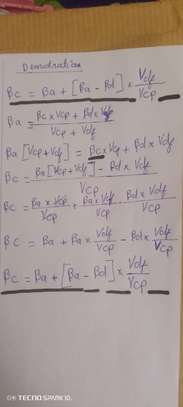 Demonstration
Bc = Ba + [Ba - Bd] × Vdf/Vcp
Ba = Bc × Vcp + Bd × Vdf / Vcp + Vdf
Ba [Vcp + Vdf] = Bc × Vcp + Bd × Vdf
Bc = Ba [Vcp + Vdf] - Bd × Vdf / Vcp
Bc = Ba × Vcp / Vcp + Ba × Vdf / Vcp - Bd × Vdf / Vcp
Bc = Ba + Ba × Vdf/Vcp - Bd × Vdf/Vcp
Bc = Ba + [Ba - Bd] × Vdf/Vcp
TECNO SPARK 10